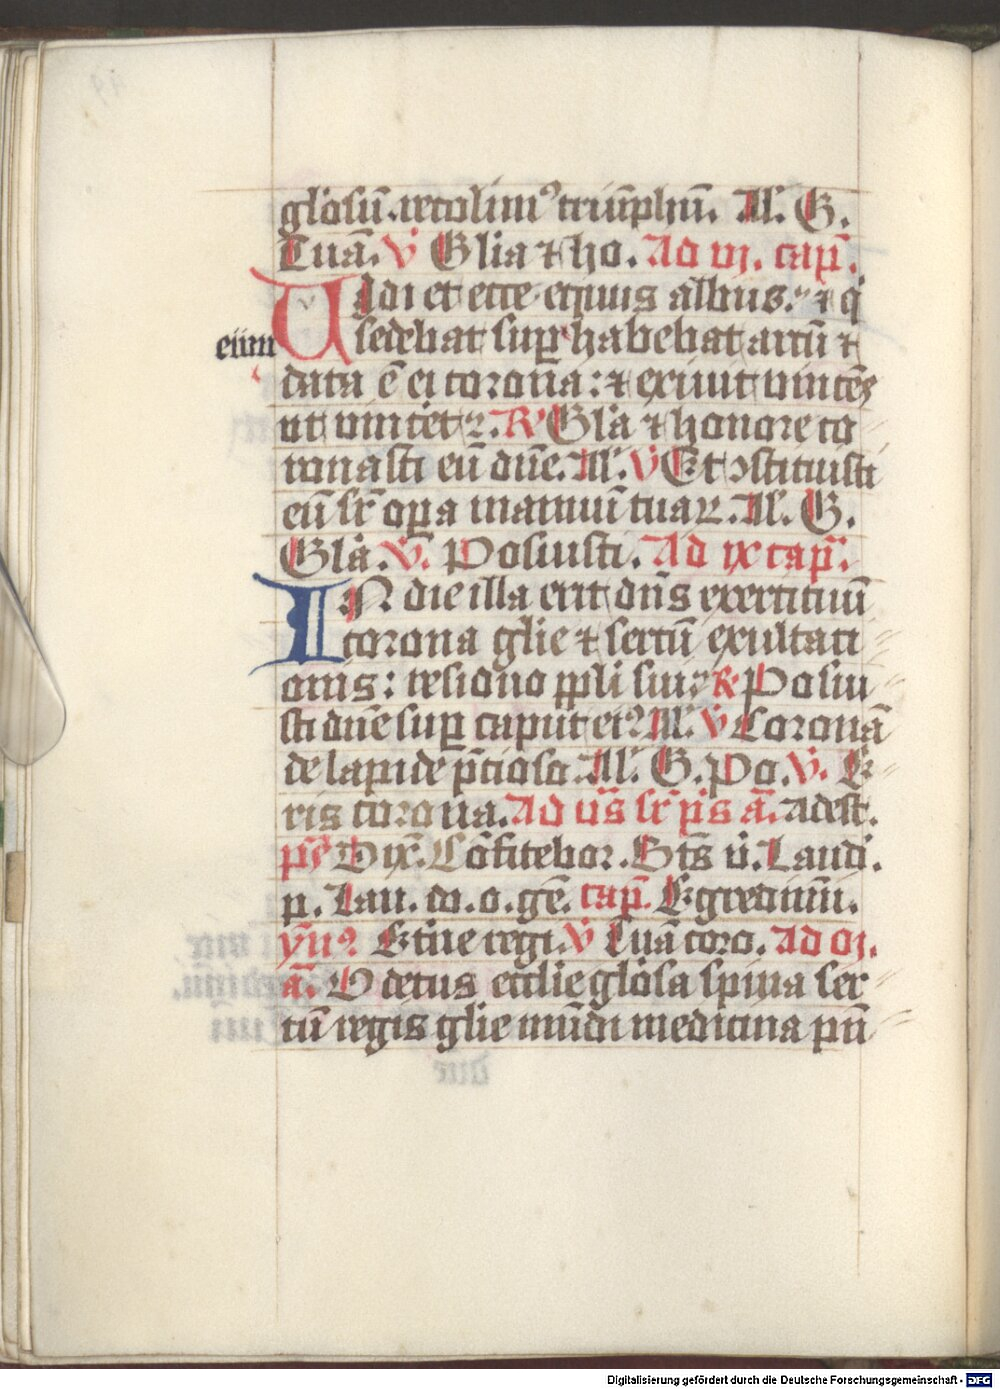 glosū recolim⁹ triūphū. All'. G.
Tuā. V Glia ⁊ ho. Ad vj. cap̄.
Uidi et ecce equus albus: ⁊ q
eum sedebat sup habebat arcū ⁊
data ē ei corona: ⁊ exiuit vincēs
ut vincēt ꝛ. R Gla ⁊ honore co
ronasti eū dn̄e. All'. V Et ↄstituisti
eū sr̄ opa manuū tuaꝝ. All'. G.
Gla. V. Posuisti. Ad ix cap̄.
IN die illa erit dn̄s exercituū
corona glie ⁊ sertū exultati
onis: residuo ppli sui. R Posui
sti dn̄e sup caput ei⁹ All'. V Coronā
de lapide p̄cioso. All'. G. Po. V. E
ris corona. Ad vs̄ sr̄ ps̄ a. Adest.
ps̄ Dix̄. Cōfitebor. Bt̄s v̄. Laudi.
p. Lau. do. o. gē. cap̄. Egredimī.
yn̄⁹ Eterne regi. V Tuā coro. Ad
a. O decus ecclie glosa spina ser
tū regis glie mūdi medicina pn̄